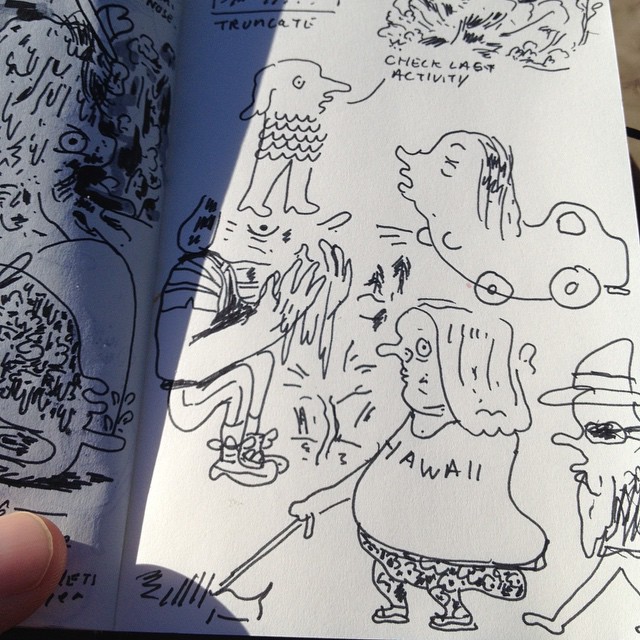 NOSE
TRUNCATE
CHECK LAST
ACTIVITY
HAWAII